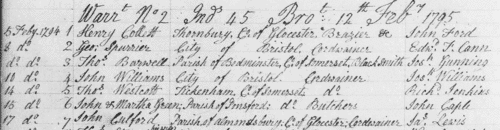 Warrt. No 2 Ind 45 Brot. 12th Feby 1795
5 Feby. 1794 1 Henry Collett Thornbury, C. of Glocester Brazier & John Ford
8 do. 2 Geo. Spurrier City of Bristol Cordwainer Edwd. T. Cann
do do. 3 Thos. Barwell Parish of Bedminster, C. of Somerset, Black Smith Jos. Gunning
10 do. 4 John Williams City of Bristol Cordwainer Jos. Williams
14 do 5 Thos. Westcott Tickenham, C. of Somerset do. Richd. Jenkins
15 do 6 John & Martha Green; Parish of do. Butchers John Caple
17 do. 7 John Parish of Almondsbury, C. of Glocester; Cordwainer Jas. Lewis